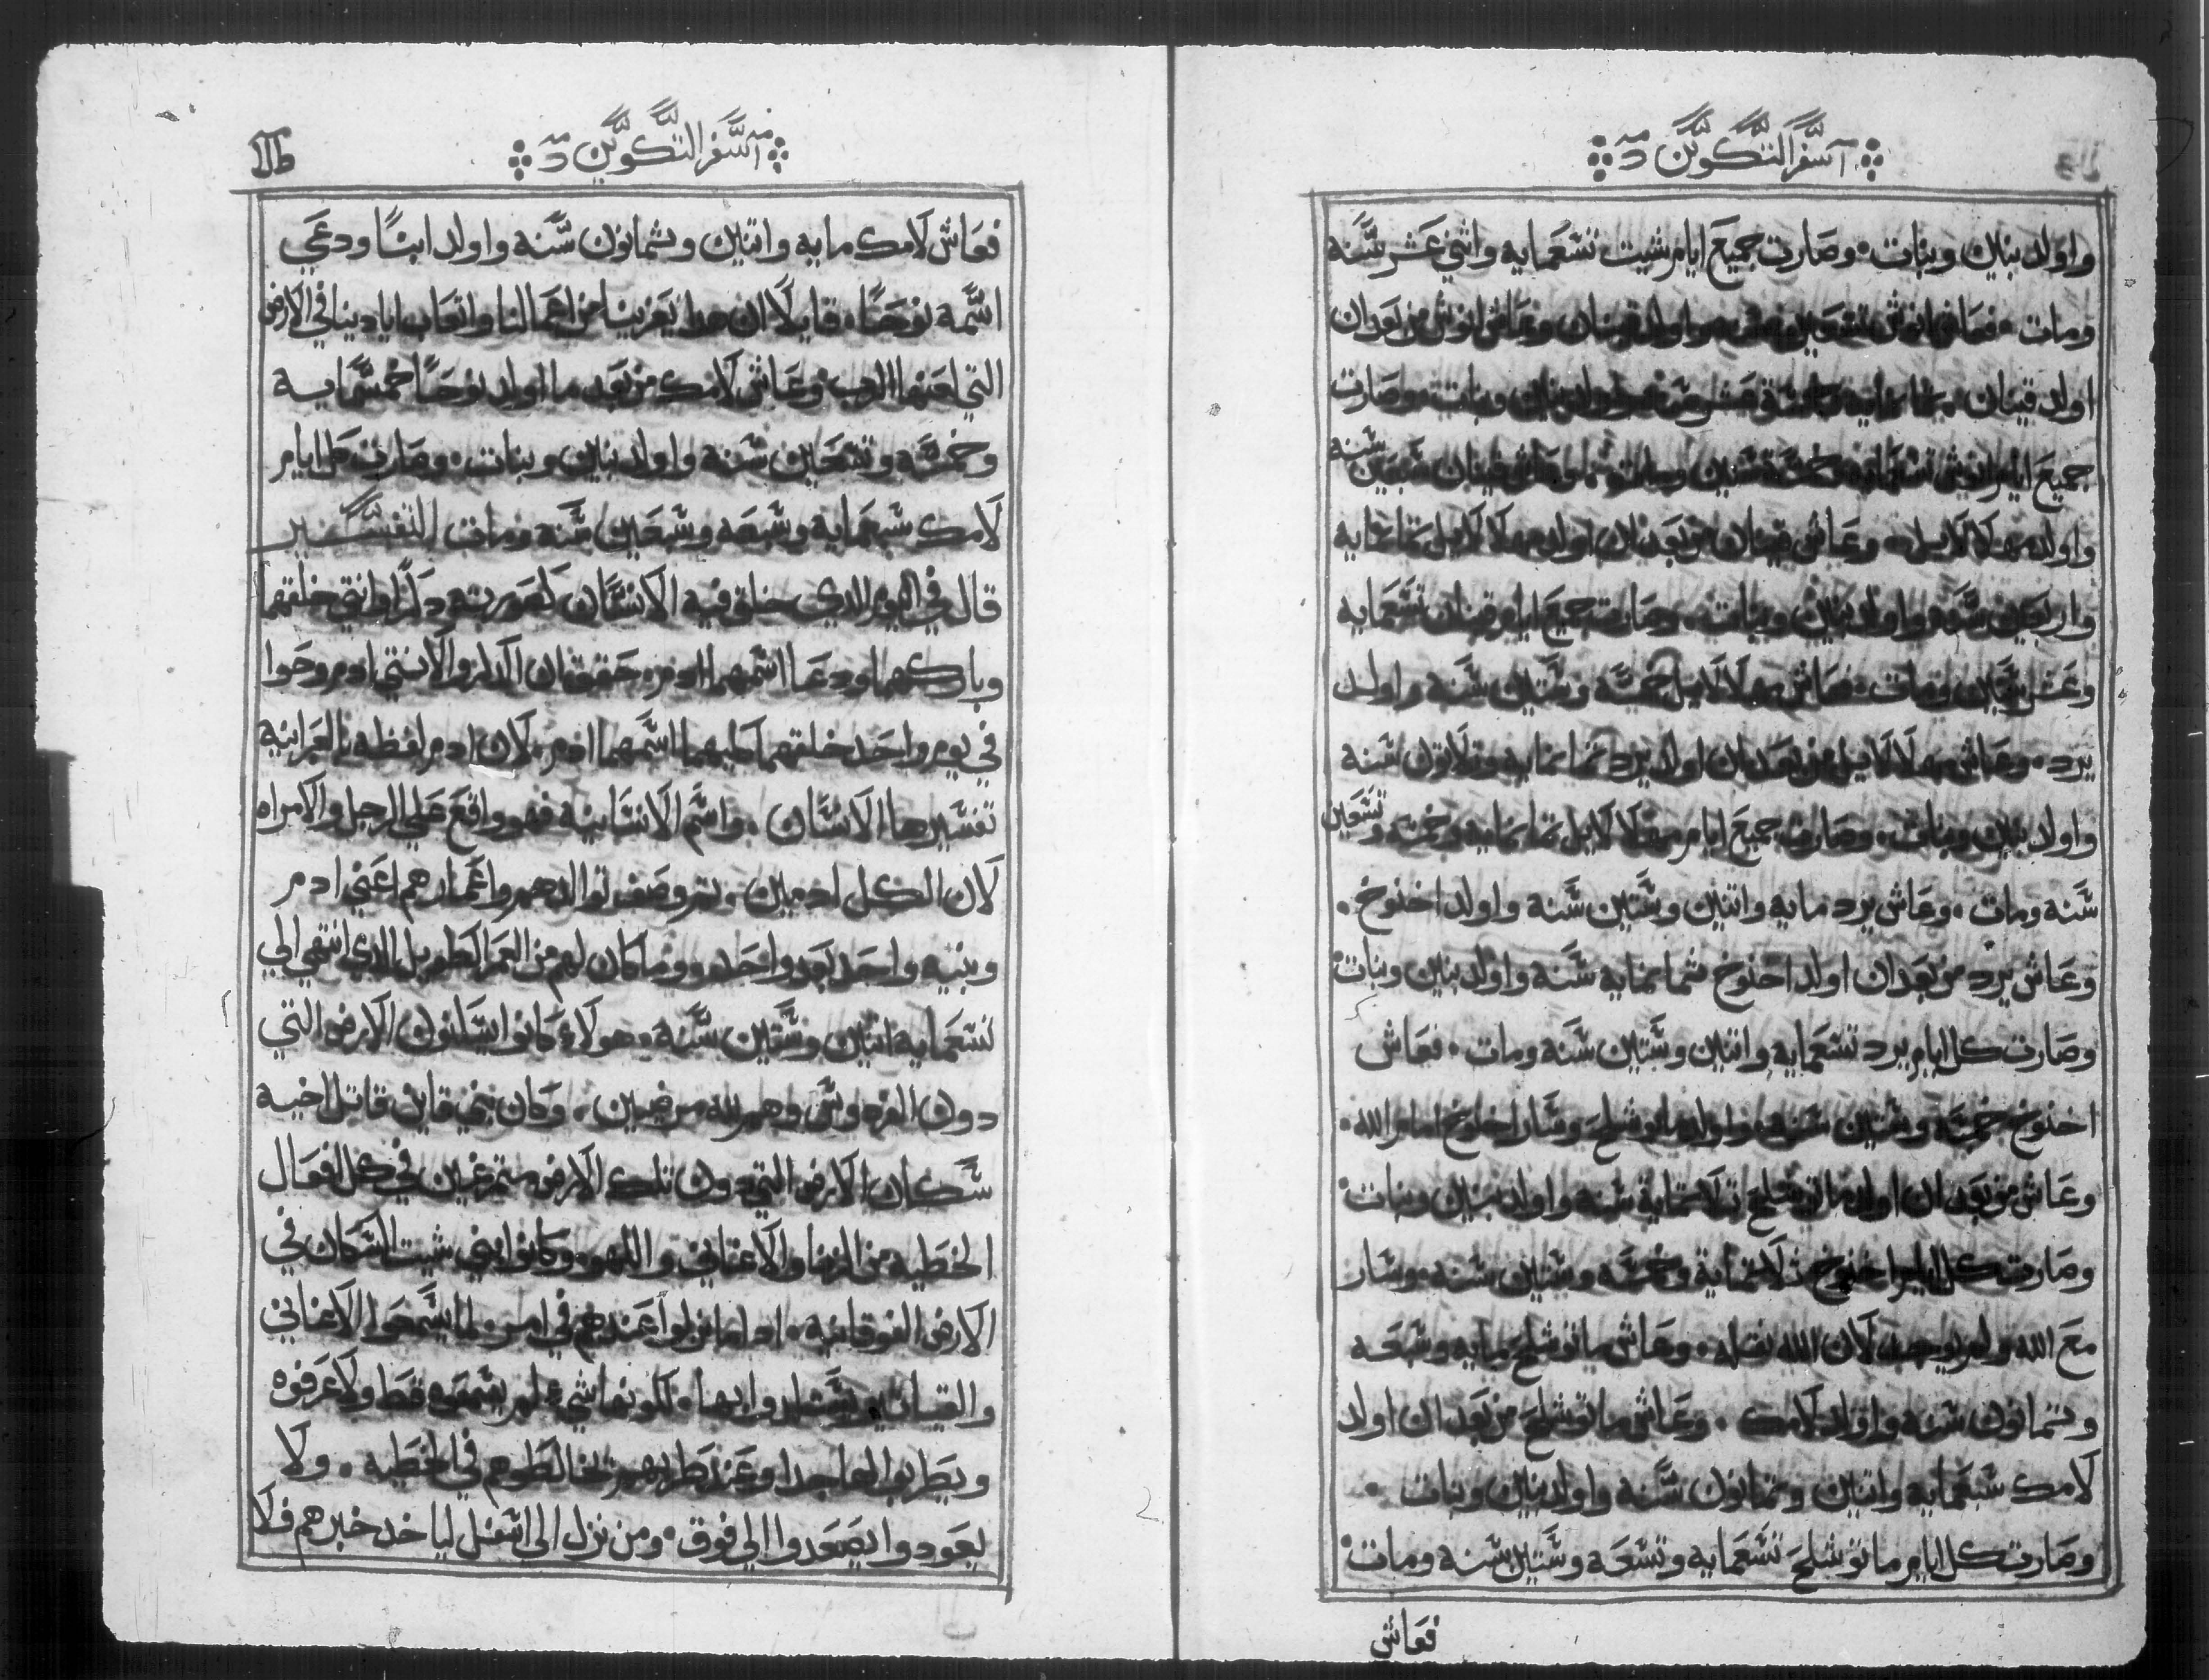 اسفر التكوين
واولد بنين وبنات. وصارت جميع ايام شيت تسعمايه واثني عشر سنه
ومات. فعاش انوش تسعين سنه واولد قينان وعاش انوش من بعد ان
اولد قينان. ثمانمايه وخمسة عشر سنه واولد بنين وبنات. وصارت
جميع ايام انوش تسعمايه وخمسة سنين ومات. وعاش قينان سبعين سنه
واولد مهلالاييل. وعاش قينان من بعد ان اولد مهلالاييل ثمانمايه
واربعين سنه واولد بنين وبنات. وصارت جميع ايام قينان تسعمايه
وعشر سنين ومات. فعاش مهلالاييل خمسه وستين سنه واولد
يرد. وعاش مهلالاييل من بعد ان اولد يرد ثمانمايه وثلاثون سنه
واولد بنين وبنات. وصارت جميع ايام مهلالاييل ثمانمايه وخمسه وتسعين
سنه ومات. وعاش يرد مايه واتنين وستين سنه واولد اخنوخ.
وعاش يرد من بعد ان اولد اخنوخ ثمانمايه سنه واولد بنين وبنات.
وصارت كل ايام يرد تسعمايه واتنين وستين سنه ومات. فعاش
اخنوخ خمسه وستين سنه واولد ماتوشلح وسار اخنوخ امام الله.
وعاش من بعد ان اولد ماتوشلح تلاتماية سنه واولد بنين وبنات.
وصارت كل ايام اخنوخ تلاتماية وخمسه وستين سنه. وسار
مع الله ولم يوجد لان الله نقله. وعاش ماتوشلح مايه وسبعه
وتمانون سنه واولد لامك. وعاش ماتوشلح من بعد ان اولد
لامك سبعمايه واتنين وتمانون سنه واولد بنين وبنات.
وصارت كل ايام ماتوشلح تسعمايه وتسعه وستين سنه ومات.
فعاش
اسفر التكوين
فعاش لامك مايه واتنين وثمانون سنه واولد ابنًا ودعي
اسمه نوحًا. قايلًا ان هدا يعزينا من اعمالنا واتعاب ايادينا في الارض
التي لعنها الرب. وعاش لامك من بعد ما اولد نوحًا خمسمايه
وخمسه وتسعين سنه واولد بنين وبنات. وصارت كل ايام
لامك سبعمايه وسبعه وسبعين سنه ومات التفسير
قال في اليوم الدي خلق فيه الانسان كصورته دكرًا وانتي خلقهما
وباركهما ودعا اسمهما ادم. حقق ان الدكر والانتي ادم وحوا
في يوم واحد خلقهما كليهما اسمهما ادم. لان ادم لفظه بالعبرانيه
تفسيرها الانسان. واسم الانسانيه فهو واقع علي الرجل والامراه
لان الكل ادميين. تم وصف توالدهم واعمارهم اعني ادم
وبنيه واحد بعد واحد وما كان لهم من العمر الطويل الدي انتهي الي
تسعمايه اتنين وستين سنه. هولاء كانوا يسكنون الارض التي
دون الفردوس وهم لله مرضيين. وكان بني قاين قاتل اخيه
سكان الارض التي دون تلك الارض متمرغين في كل افعال
الخطيه من الزنا والاغاني واللهو. وكانوا بني شيت السكان في
الارض الفوقانيه. ادا ما نزلوا عندهم في امر. لما يسمعوا الاغاني
والقيان يستلدوا بها. لكونها شيء لم يسمعوه قط ولا عرفوه
ويطربوا لها جدا وعند طربهم تخالطوهم في الخطيه. ولا
يعودوا يصعدوا الي فوق. ومن نزل الي اسفل لياخد خبرهم فلا